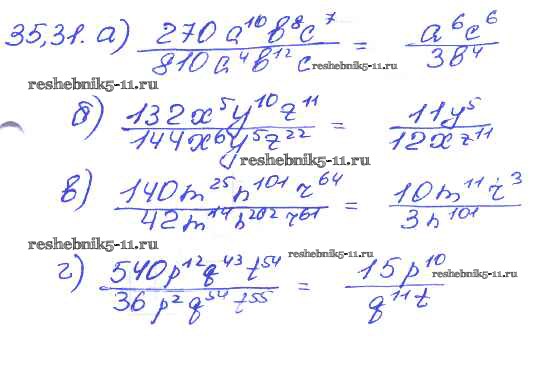 35,31. а) 270 a¹⁰ b⁸ c⁷ / 810 a⁴ b¹² c = a⁶ c⁶ / 3b⁴
reshebnik5-11.ru
reshebnik5-11.ru
б) 132x⁵y¹⁰z¹¹ / 144x⁶y⁵z²² = 11y⁵ / 12xz¹¹
reshebnik5-11.ru
в) 140m²⁵n¹⁰¹r⁶⁴ / 42m¹⁴n²⁰²r⁶¹ = 10m¹¹r³ / 3n¹⁰¹
reshebnik5-11.ru
reshebnik5-11.ru
г) 540p¹²q⁴³t⁵⁴ / 36p²q⁵⁴t⁵⁵ = 15p¹⁰ / q¹¹t
reshebnik5-11.ru